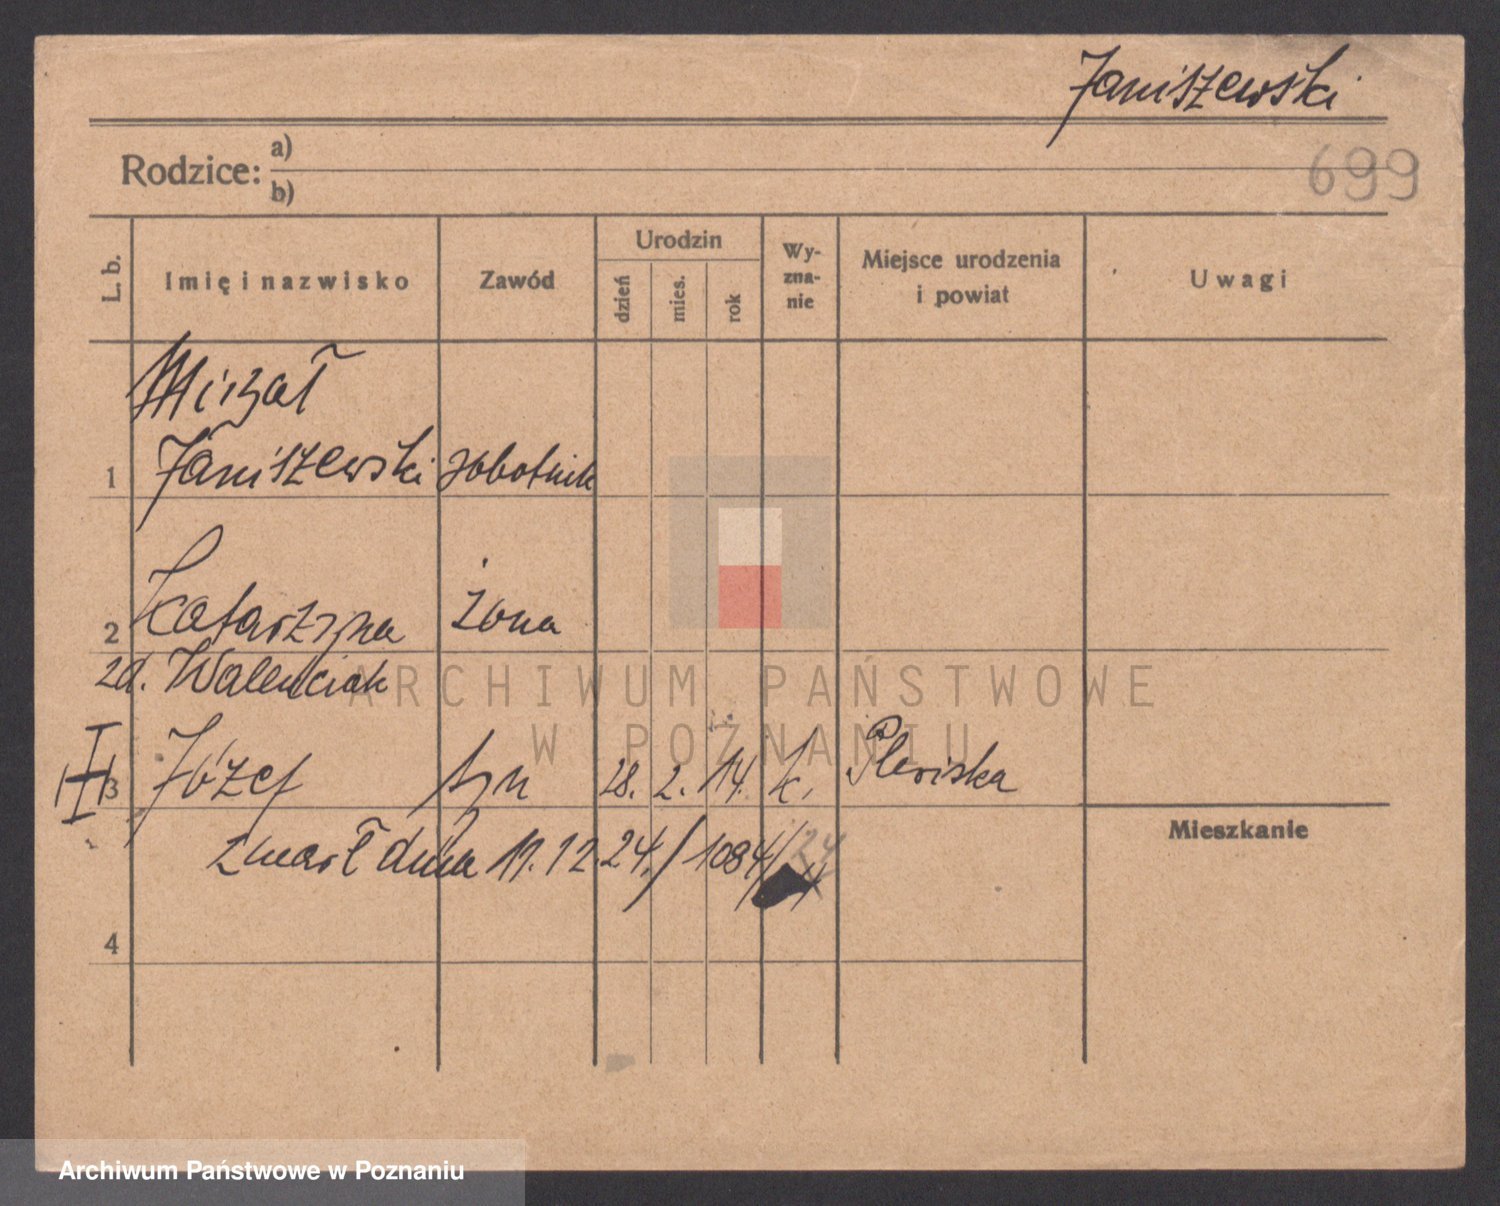 Janiszewski
Rodzice: a)
b)
699
L. b.
Imię i nazwisko
Zawód
Urodzin
dzień
mies.
rok
Wy-
zna-
nie
Miejsce urodzenia
i powiat
Uwagi
Michał
1 Janiszewski robotnik
2 Katarzyna żona
zd. Walenciak
3 Józef syn 28. 2. 14. k. Plewiska
zmarł dnia 11.12.24./1084/24
Mieszkanie
4
ARCHIWUM PAŃSTWOWE
W POZNANIU
Archiwum Państwowe w Poznaniu